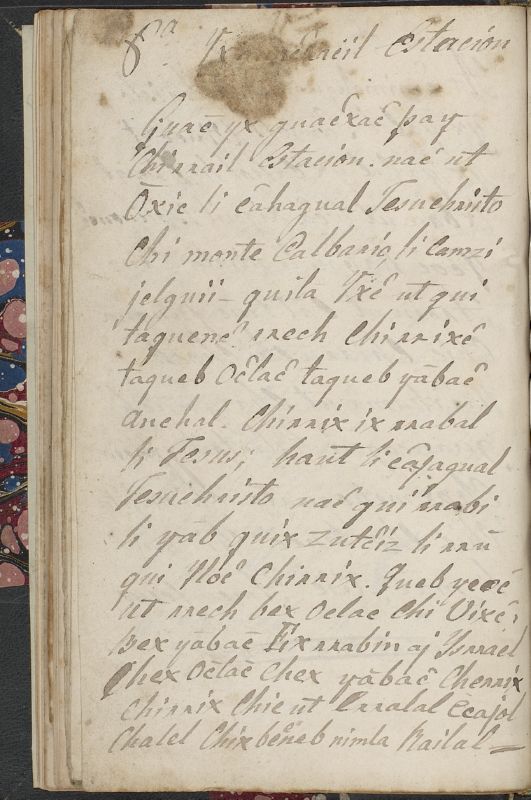 8ª Estación
Guae yx quaêxaê pay
Chirrail Estacion. naê ut
Oxic li Câhagual Jesuchristo
Chi monte Calbario, li Camzi
jelguii- quila Yxê ut qui
taquenê rrech Chirrixê
taqueb Oêlaê taqueb yābaê
anchal. Chirrix ix rrabal
li Jesus; haut li câjagual
Jesuchristo naê qui rrabi
li yāb quix zutêiz li rrū
qui Yloê Chirrix. Queb yeeê
ut rrech bex Oclae Chi Vixê;
bex yābaē Yix rrabin aj Ysrrael
Chex Oêlaê Chex yābaê Cherrix
Chirrix Chie ut Erralal Ecajol
Chalel Chix bêneb nimla Railal-